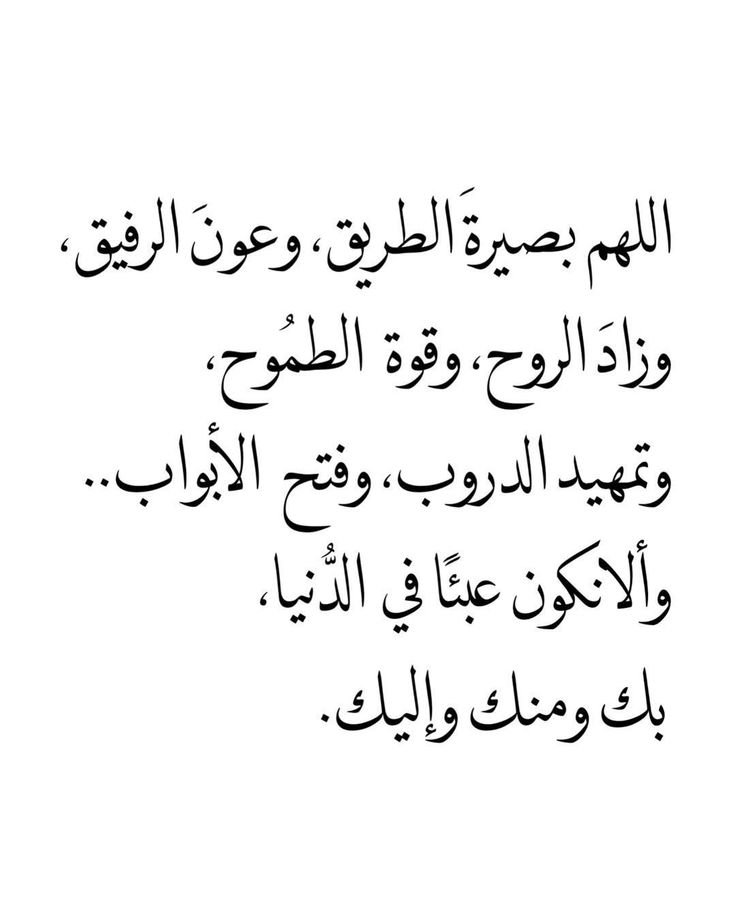 اللهم بصيرةَ الطريق، وعونَ الرفيق،
وزادَ الروح، وقوة الطمُوح،
وتمهيد الدروب، وفتح الأبواب..
وألانكون عبئًا في الدُّنيا،
بك ومنك وإليك.